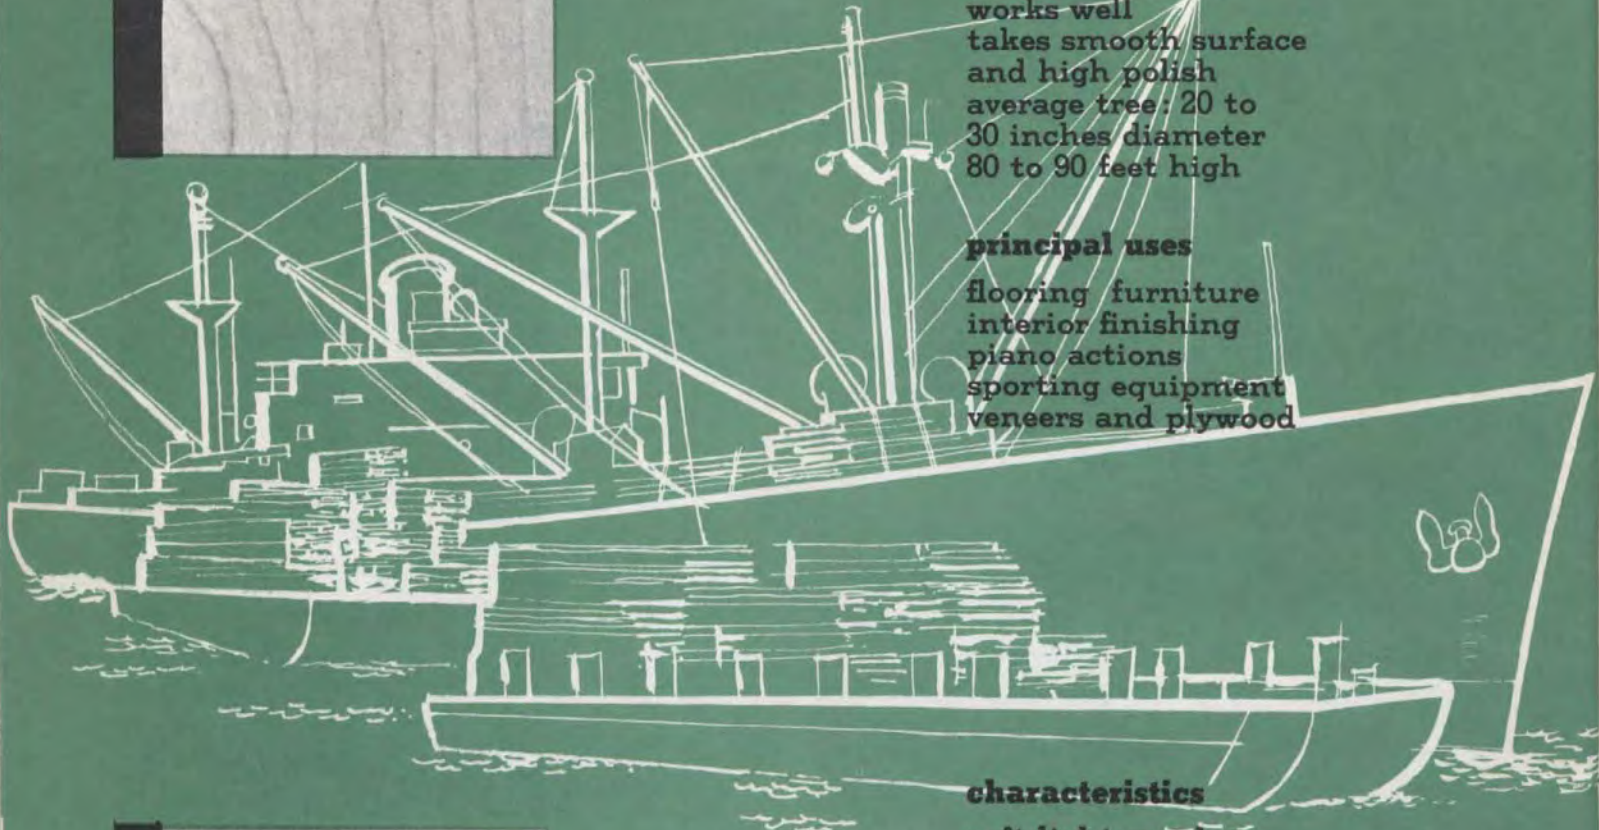 works well
takes smooth surface
and high polish
average tree: 20 to
30 inches diameter
80 to 90 feet high
principal uses
flooring furniture
interior finishing
piano actions
sporting equipment
veneers and plywood
characteristics